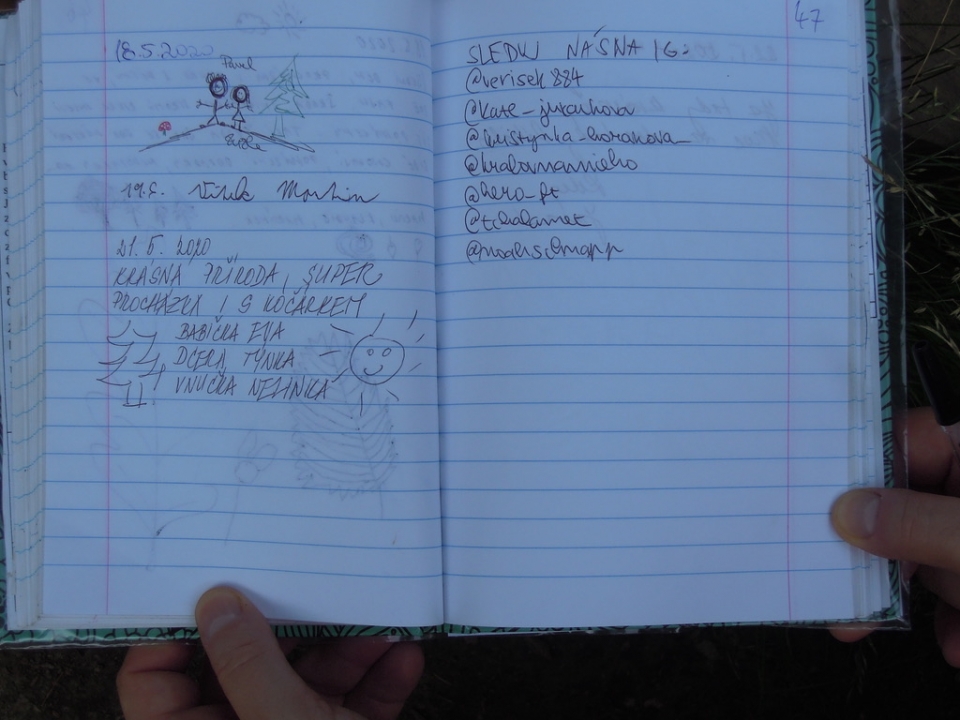 18.5.2020
Pavel
19.5. Vítek Martin
21.5.2020
KRÁSNÁ PŘÍRODA, SUPER
PROCHÁZKA I S KOČÁRKEM
BABIČKA EVA
DCERA TYNKA
VNUČKA NELINKA
47
SLEDUJ NÁS NA IG:
@verisek884
@kate_jirankova
@kristynka_horakova_
@hero_ft
@tchalamet